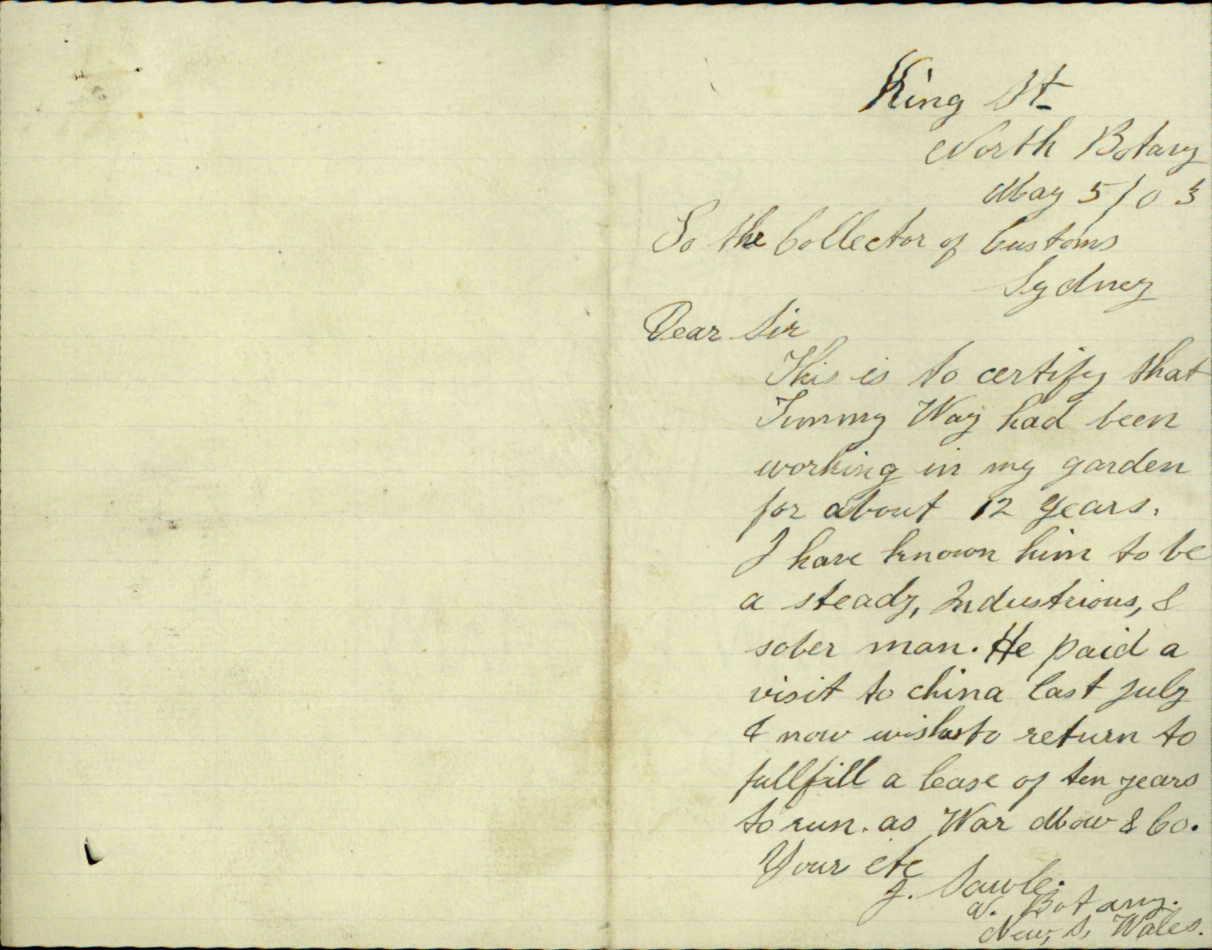 King St
North Botany
May 5/03
To the Collector of Customs
Sydney
Dear Sir
This is to certify that
Timmy Way had been
working in my garden
for about 12 years.
I have known him to be
a steady, Industrious, &
sober man. He paid a
visit to china last July
& now wishes to return to
fullfill a lease of ten years
to run. as War Mow & Co.
Your etc
J. Sawle.
N. Botany.
New S. Wales.